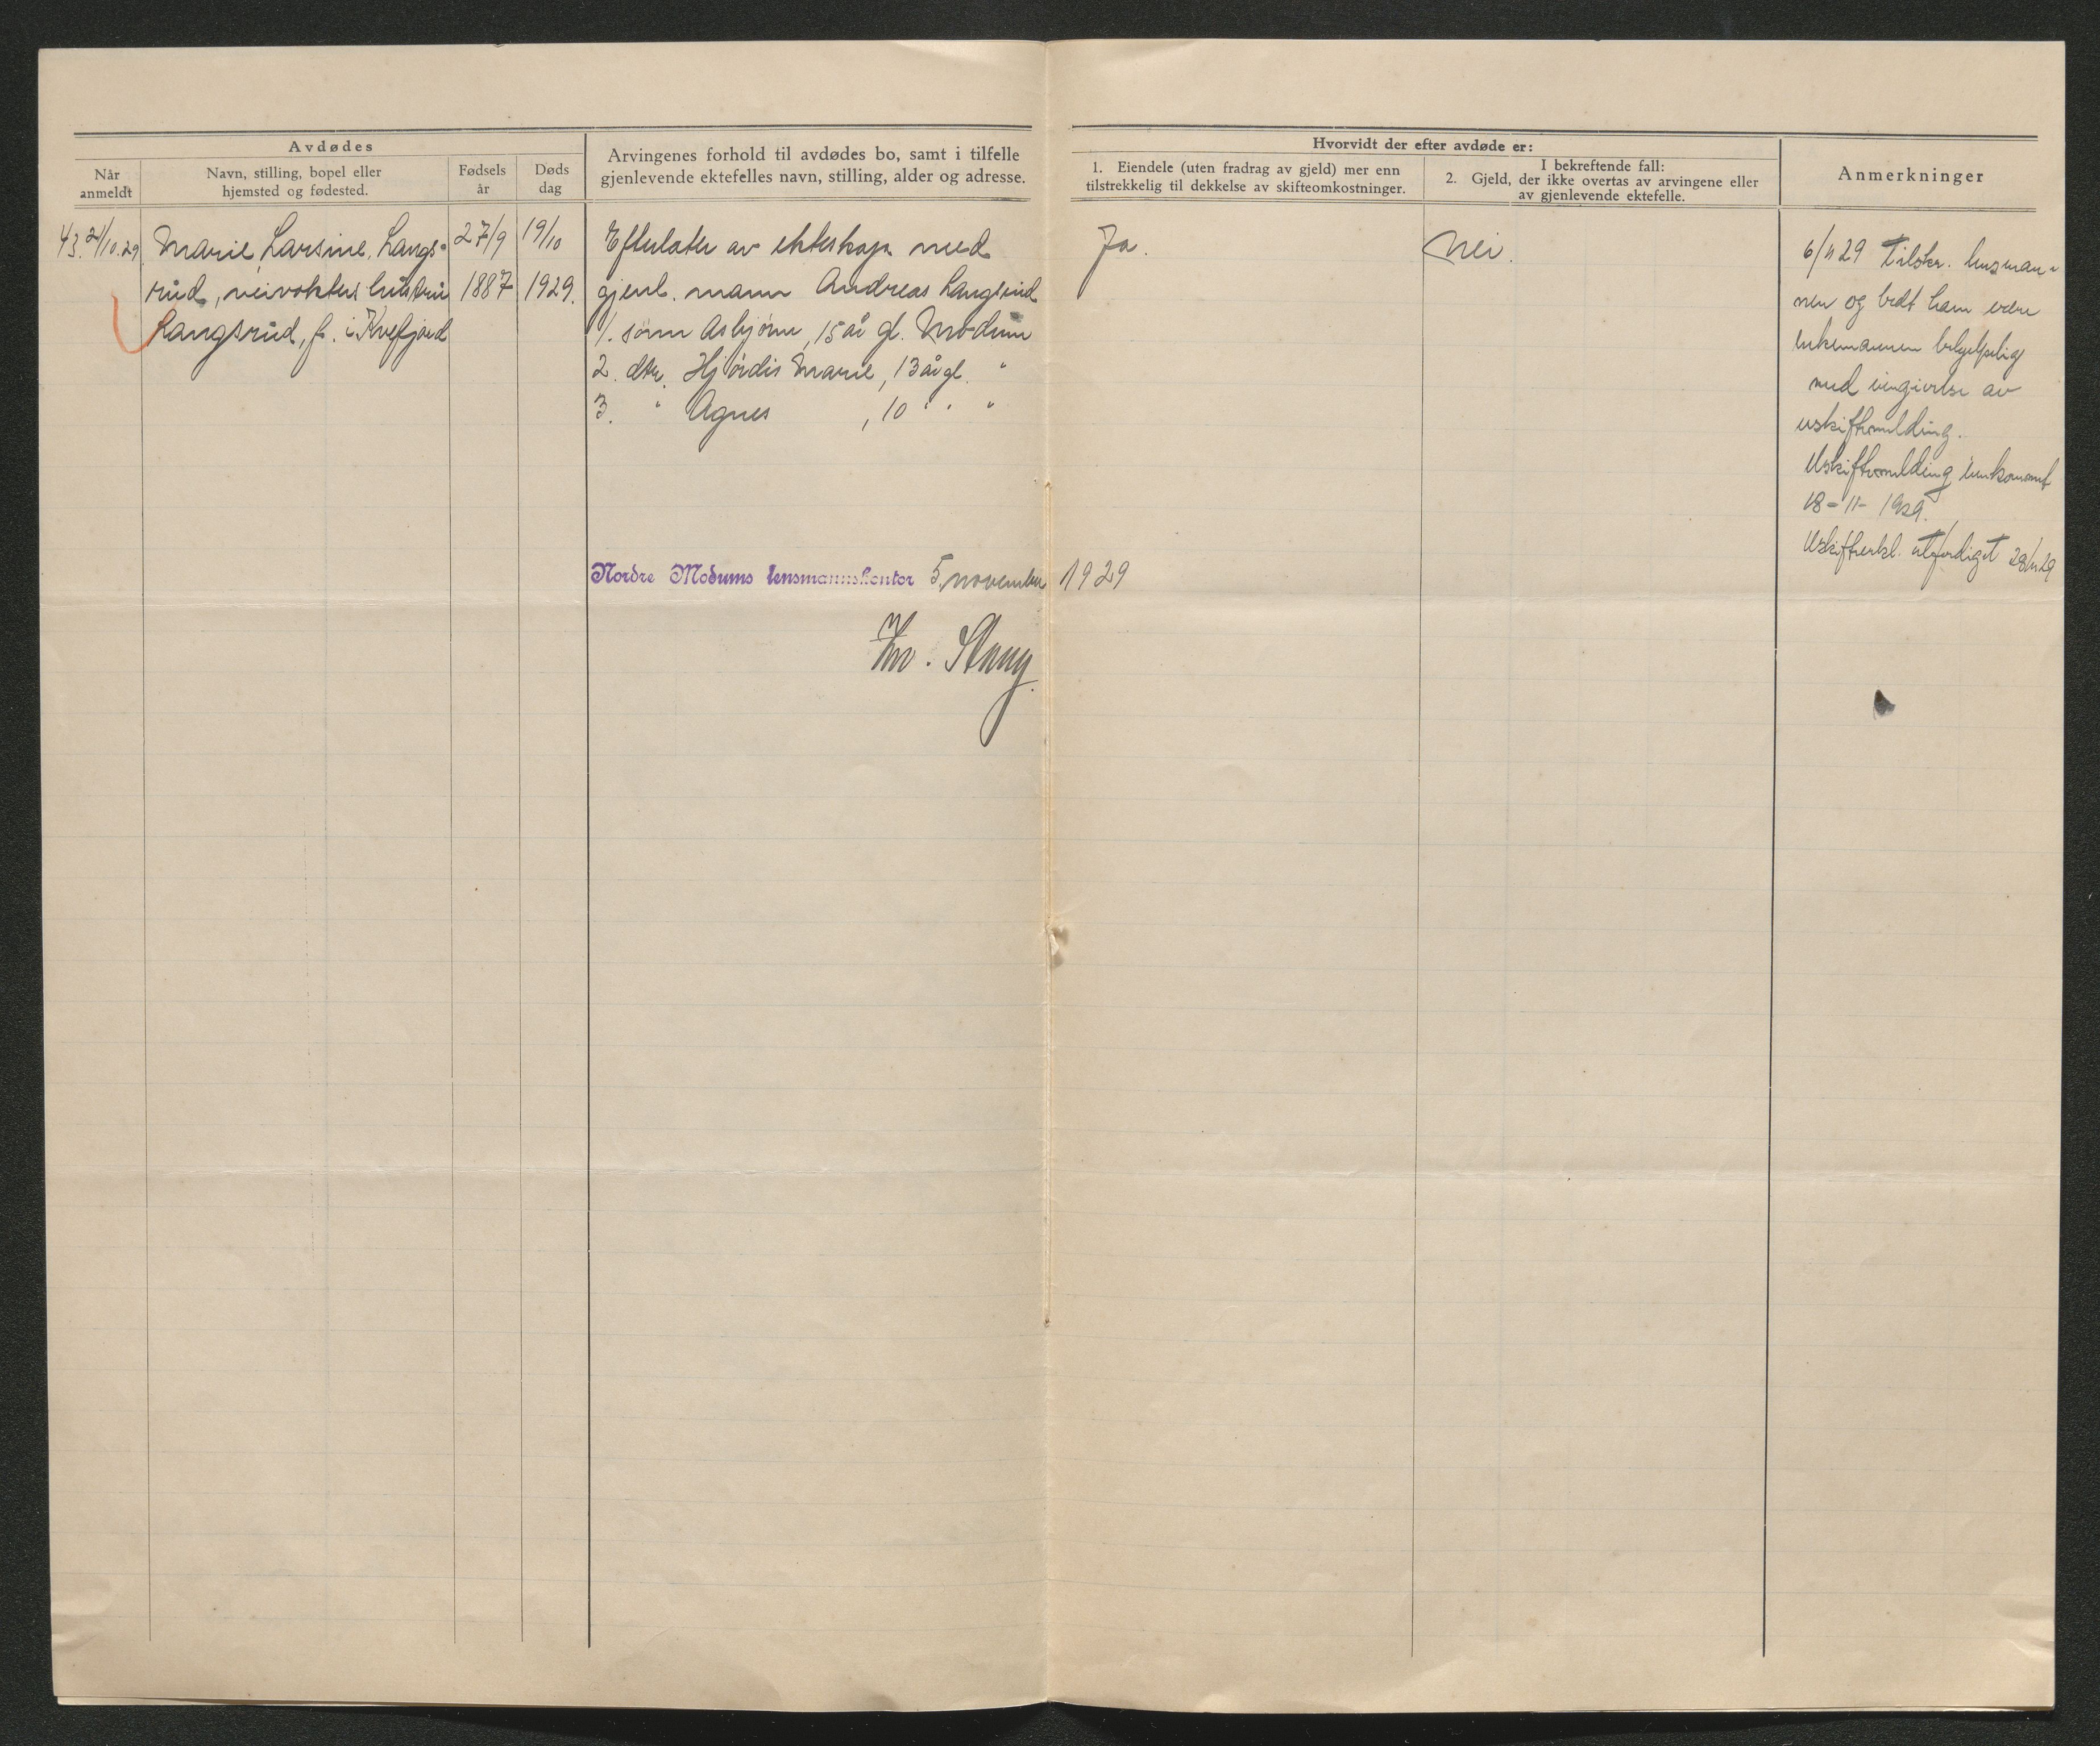 Avdødes
Når
anmeldt
Navn, stilling, bopel eller
hjemsted og fødested.
Fødsels
år
Døds
dag
Arvingenes forhold til avdødes bo, samt i tilfelle
gjenlevende ektefelles navn, stilling, alder og adresse.
Hvorvidt der efter avdøde er:
1. Eiendele (uten fradrag av gjeld) mer enn
tilstrekkelig til dekkelse av skifteomkostninger.
I bekreftende fall:
2. Gjeld, der ikke overtas av arvingene eller
av gjenlevende ektefelle.
Anmerkninger
43. 21/10.29
Marie Larsine Langs-
rud, veivokters hustru
Langsrud, f. i Kvefjord
27/9
1887
19/10
1929.
Efterlater av ekteskap med
gjenl. mann Andreas Langsrud
1. sønn Asbjørn, 15 år gl. Modum
2. dtr. Hjørdis Marie, 13 år gl. "
3. " Agnes , 10 " " "
Ja.
Nei.
6/11 29 Tilskr. lensman-
nen og bedt ham være
enkemannen behjelpelig
med inngivelse av
uskiftemelding.
Uskiftemelding innkommet
18-11-1929.
Uskifteerkl. utferdiget 29/11 29
Nordre Modums lensmannskontor 5. november 1929